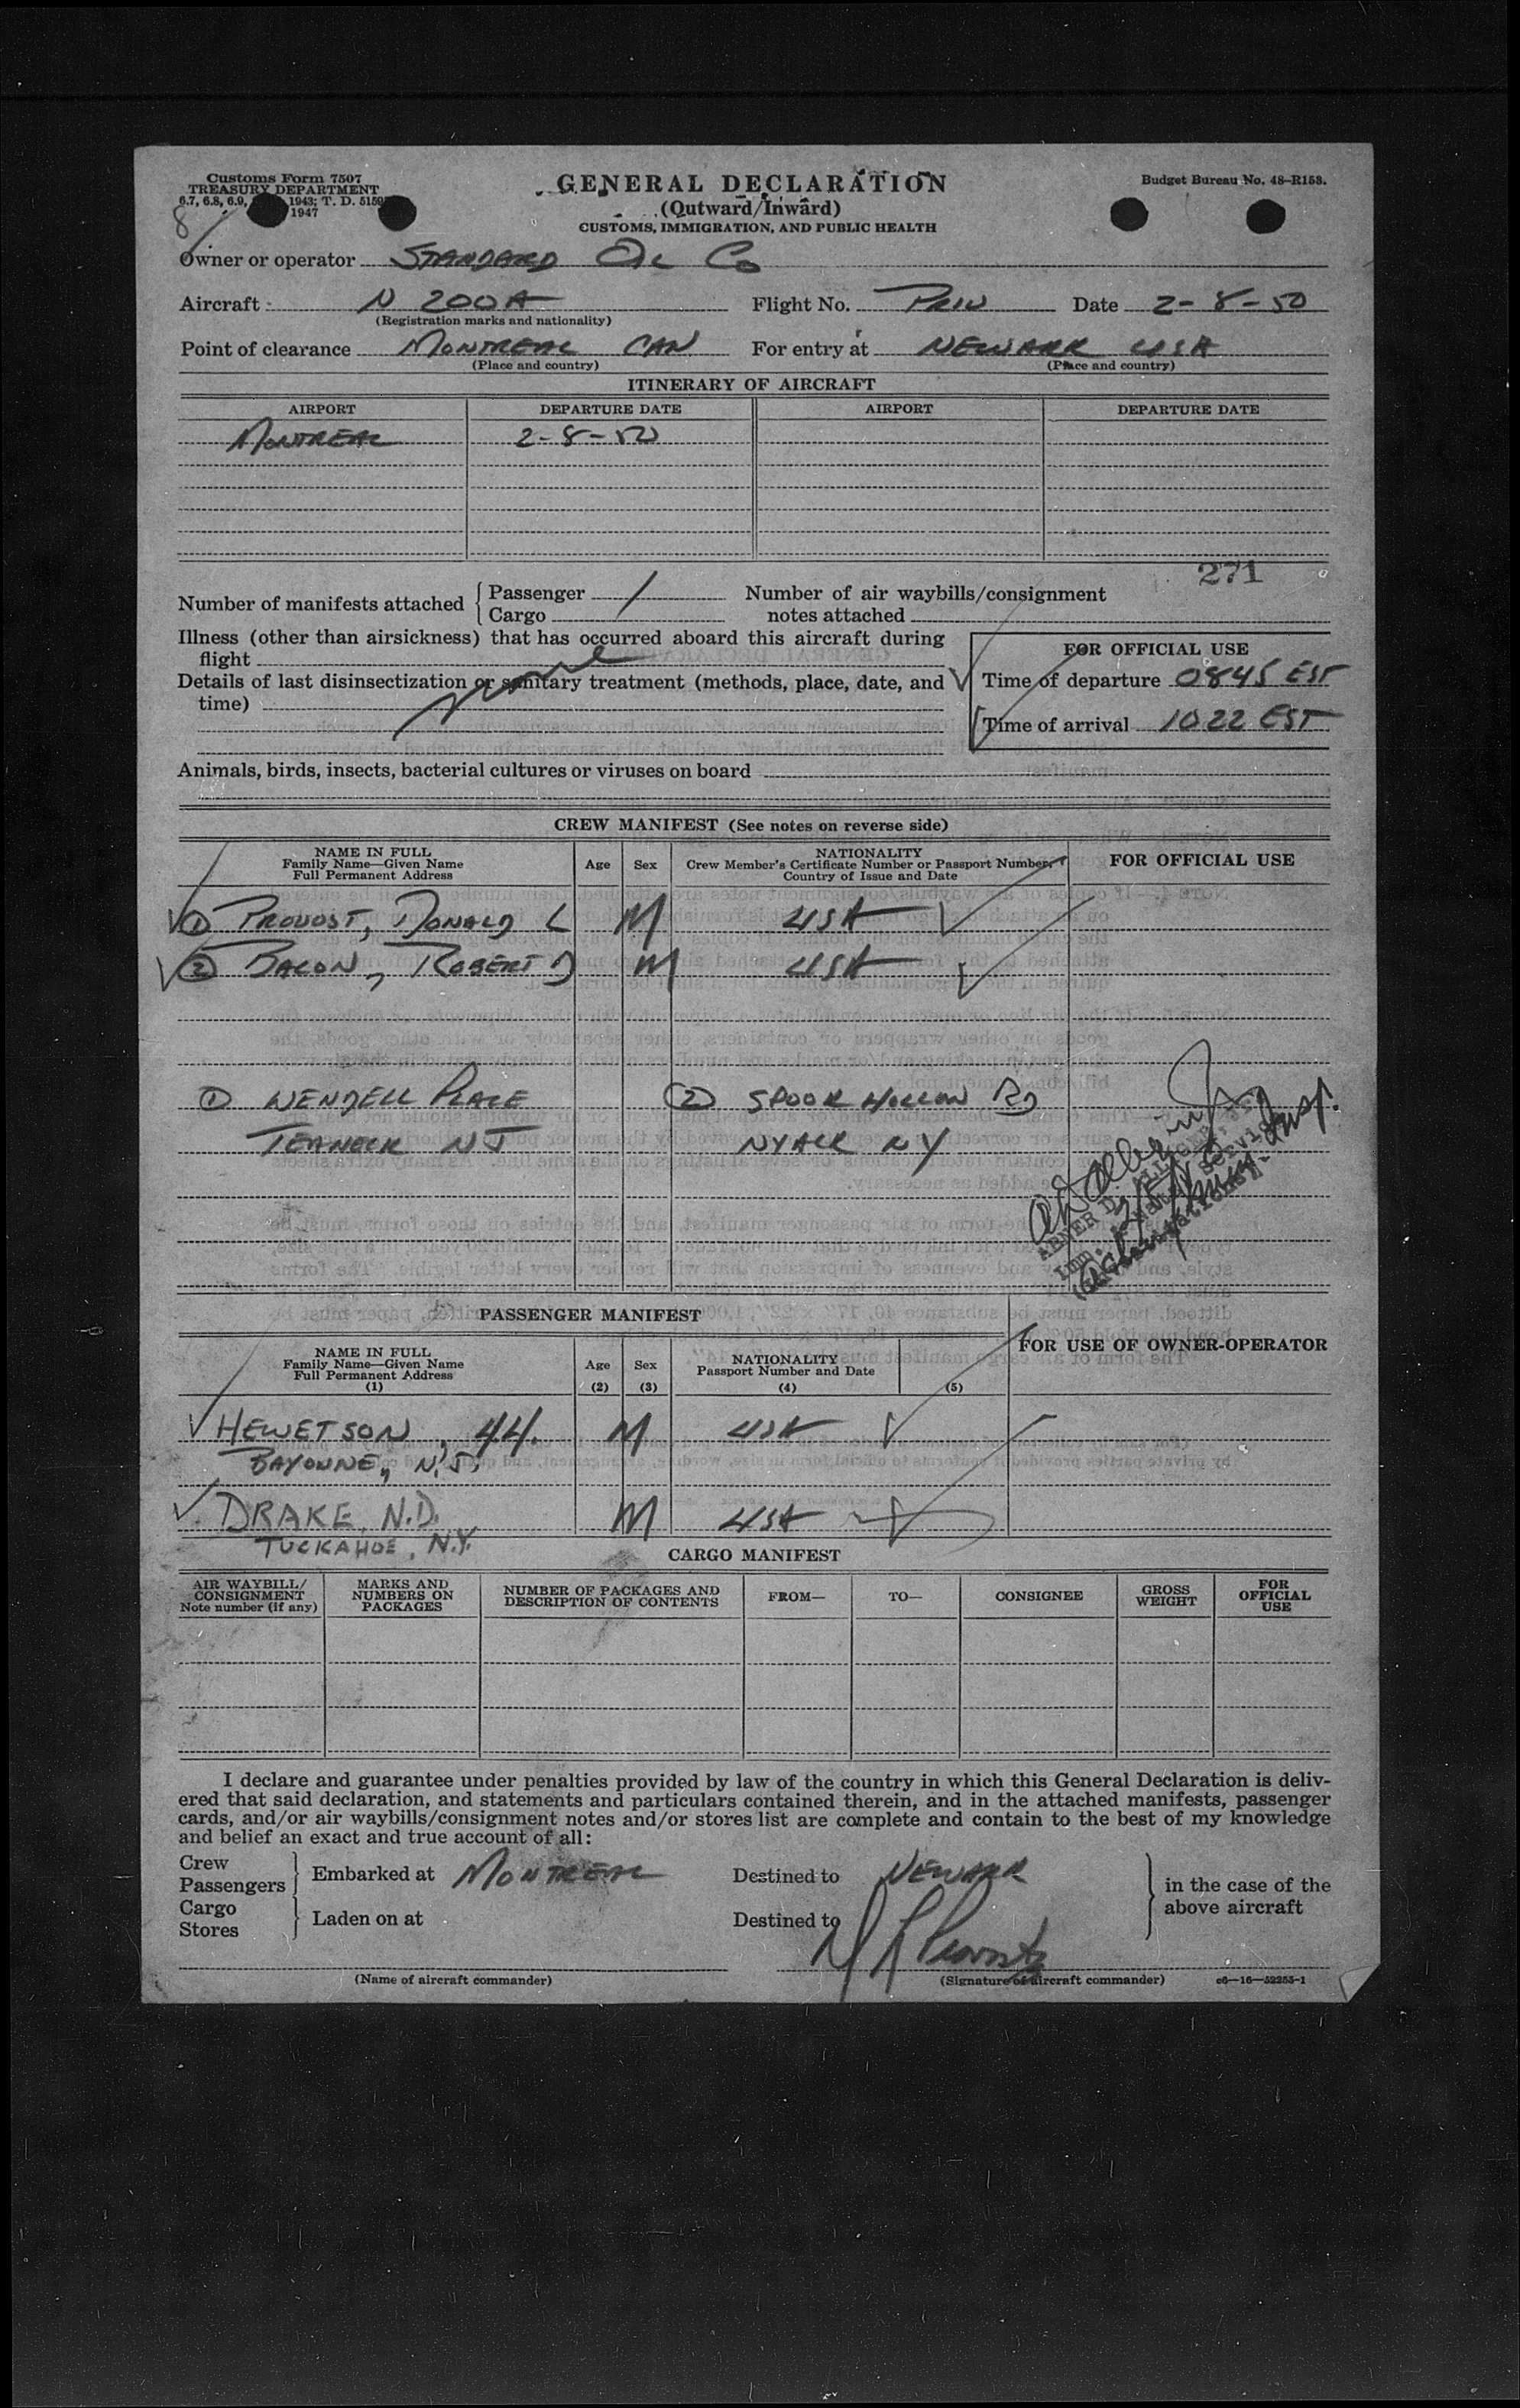 Customs Form 7507
TREASURY DEPARTMENT
6.7, 6.8, 6.9, 1943; T. D. 5159
1947
GENERAL DECLARATION
(Outward/Inward)
CUSTOMS, IMMIGRATION, AND PUBLIC HEALTH
Budget Bureau No. 48-R153.
8
Owner or operator STANDARD OIL CO
Aircraft N 200A Flight No. PRIV Date 2-8-50
(Registration marks and nationality)
Point of clearance MONTREAL CAN For entry at NEWARK USA
(Place and country) (Place and country)
ITINERARY OF AIRCRAFT
AIRPORT DEPARTURE DATE AIRPORT DEPARTURE DATE
MONTREAL 2-8-50
271
Number of manifests attached { Passenger 1 Number of air waybills/consignment
Cargo notes attached
Illness (other than airsickness) that has occurred aboard this aircraft during
flight none
FOR OFFICIAL USE
Details of last disinsectization or sanitary treatment (methods, place, date, and
time)
Time of departure 0845 EST
Time of arrival 1022 EST
Animals, birds, insects, bacterial cultures or viruses on board
CREW MANIFEST (See notes on reverse side)
NAME IN FULL
Family Name—Given Name
Full Permanent Address
Age Sex
NATIONALITY
Crew Member's Certificate Number or Passport Number,
Country of Issue and Date
FOR OFFICIAL USE
① PROVOST, DONALD L M USA
② BACON, ROBERT D M USA
① WENDELL PLACE ② SPOOK HOLLOW RD
TEANECK NJ NYACK NY
PASSENGER MANIFEST
FOR USE OF OWNER-OPERATOR
NAME IN FULL
Family Name—Given Name
Full Permanent Address
(1)
Age
(2)
Sex
(3)
NATIONALITY
Passport Number and Date
(4) (5)
HEWETSON, H.H. M USA
BAYONNE, N.J.
DRAKE, N.D. M USA
TUCKAHOE, N.Y.
CARGO MANIFEST
AIR WAYBILL/
CONSIGNMENT
Note number (if any)
MARKS AND
NUMBERS ON
PACKAGES
NUMBER OF PACKAGES AND
DESCRIPTION OF CONTENTS
FROM— TO— CONSIGNEE
GROSS
WEIGHT
FOR
OFFICIAL
USE
I declare and guarantee under penalties provided by law of the country in which this General Declaration is deliv-
ered that said declaration, and statements and particulars contained therein, and in the attached manifests, passenger
cards, and/or air waybills/consignment notes and/or stores list are complete and contain to the best of my knowledge
and belief an exact and true account of all:
Crew
Passengers } Embarked at MONTREAL Destined to NEWARK
in the case of the
above aircraft
Cargo
Stores } Laden on at Destined to
D L Provost
(Name of aircraft commander) (Signature of aircraft commander) c6—16—52255-1